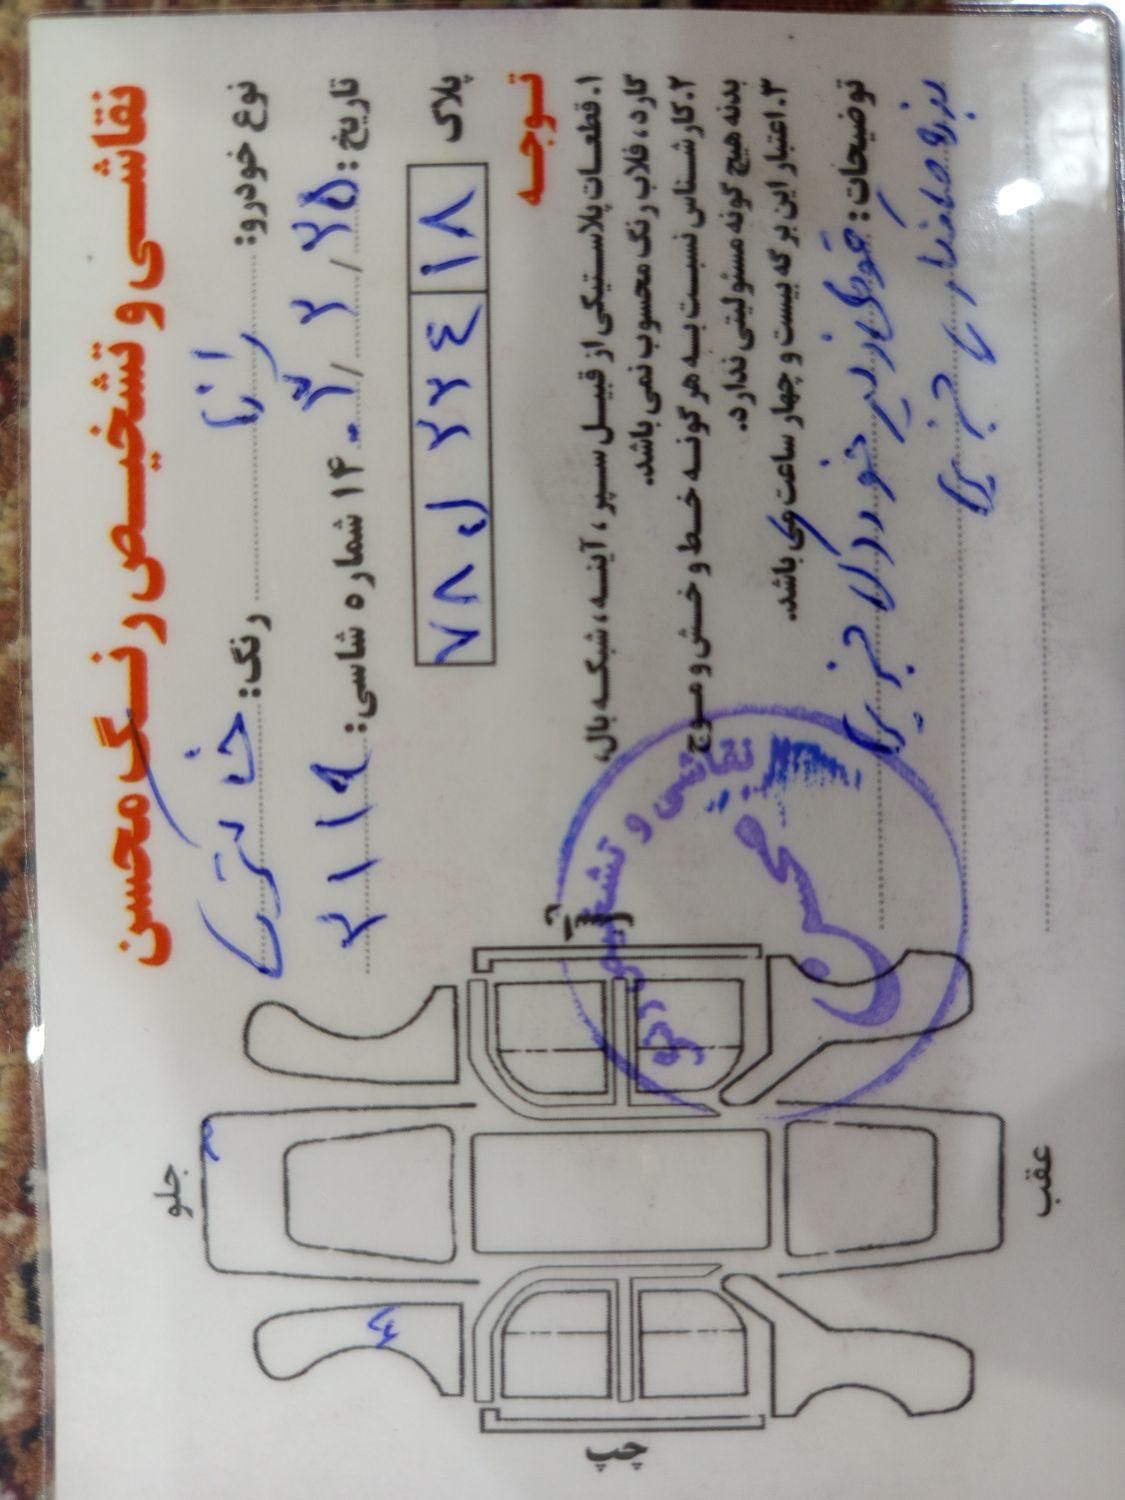 نقاشی و تشخیص رنگ محسن
نوع خودرو: رانا رنگ: خاکستری
تاریخ: ۲۵ / ۲ / ۱۴۰۳ شماره شاسی: ۲۱۱۹
پلاک ۱۸ ۲۲۴ ل ۷۸
توجه
۱. قطعات پلاستیکی از قبیل سپر، آینه، شبکه بال،
کارد، فلاب رنگ محسوب نمی باشد.
۲. کارشناس نسبت به هرگونه خط و خش و موج
بدنه هیچ گونه مسئولیتی ندارد.
۳. اعتبار این برگه بیست و چهار ساعت می باشد.
توضیحات: زیر خوردگی جزیی
جزیی
نقاشی و تشخیص رنگ
محسن
راست
جلو
عقب
چپ